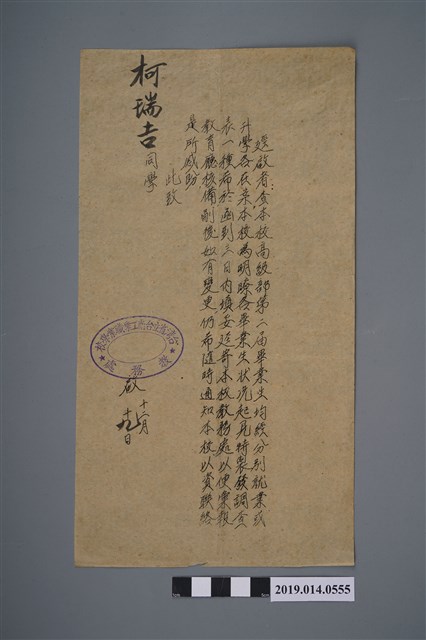 逕啟者:查本校高級部第二届畢業生均經分別就業或
升學各在案本校為明瞭各畢業生狀況起見特製發調查
表一種希於函到三日内填妥逕寄本校教務處以便彙報
教育廳核備嗣後如有變更仍希隨時通知本校以資聯絡
是所感盼
此致
柯瑞吉同學
教務處
啟
十二月
十九日
2019.014.0555